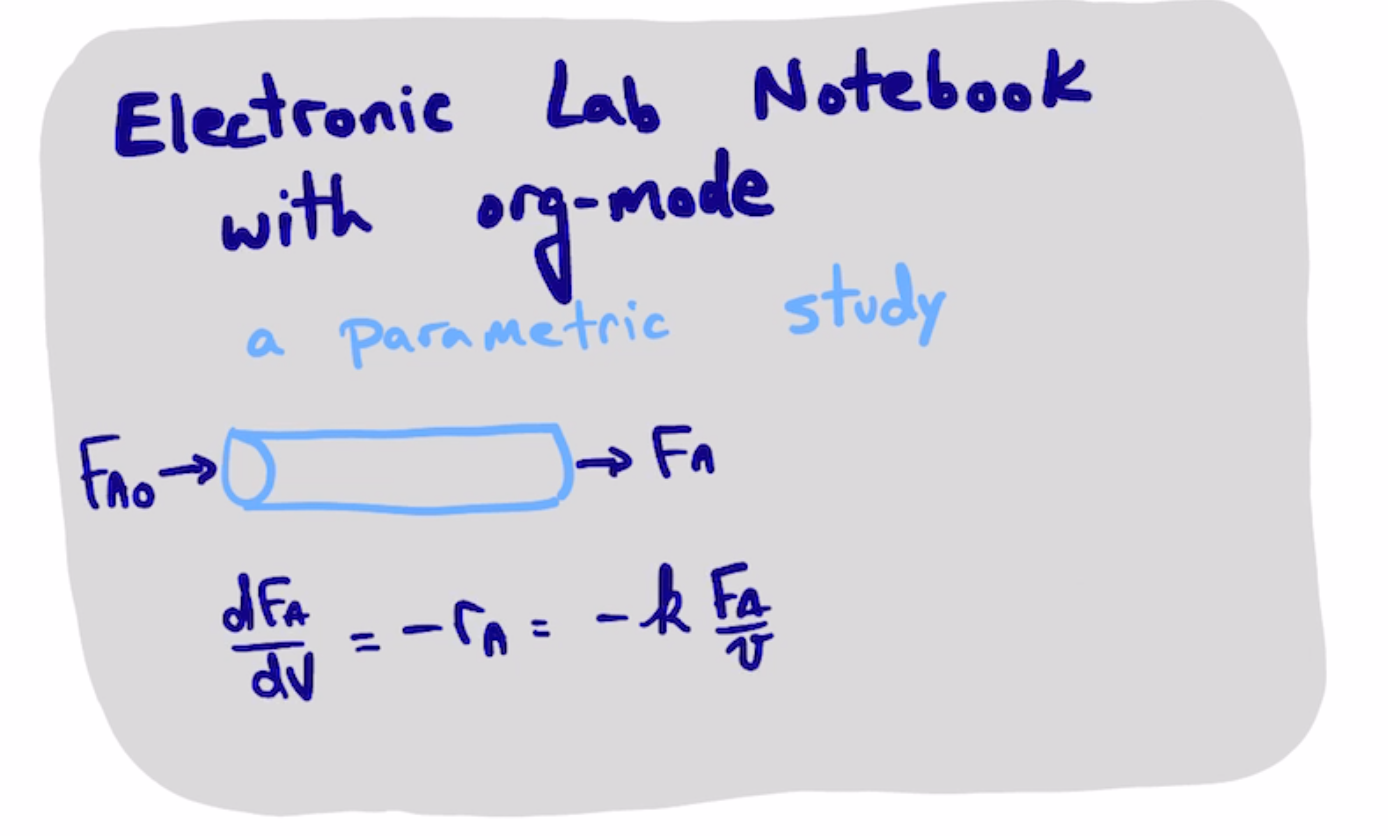 Electronic Lab Notebook
with org-mode
a parametric study
F_A0 → → F_A
dF_A/dV = -r_A = -k F_A/v